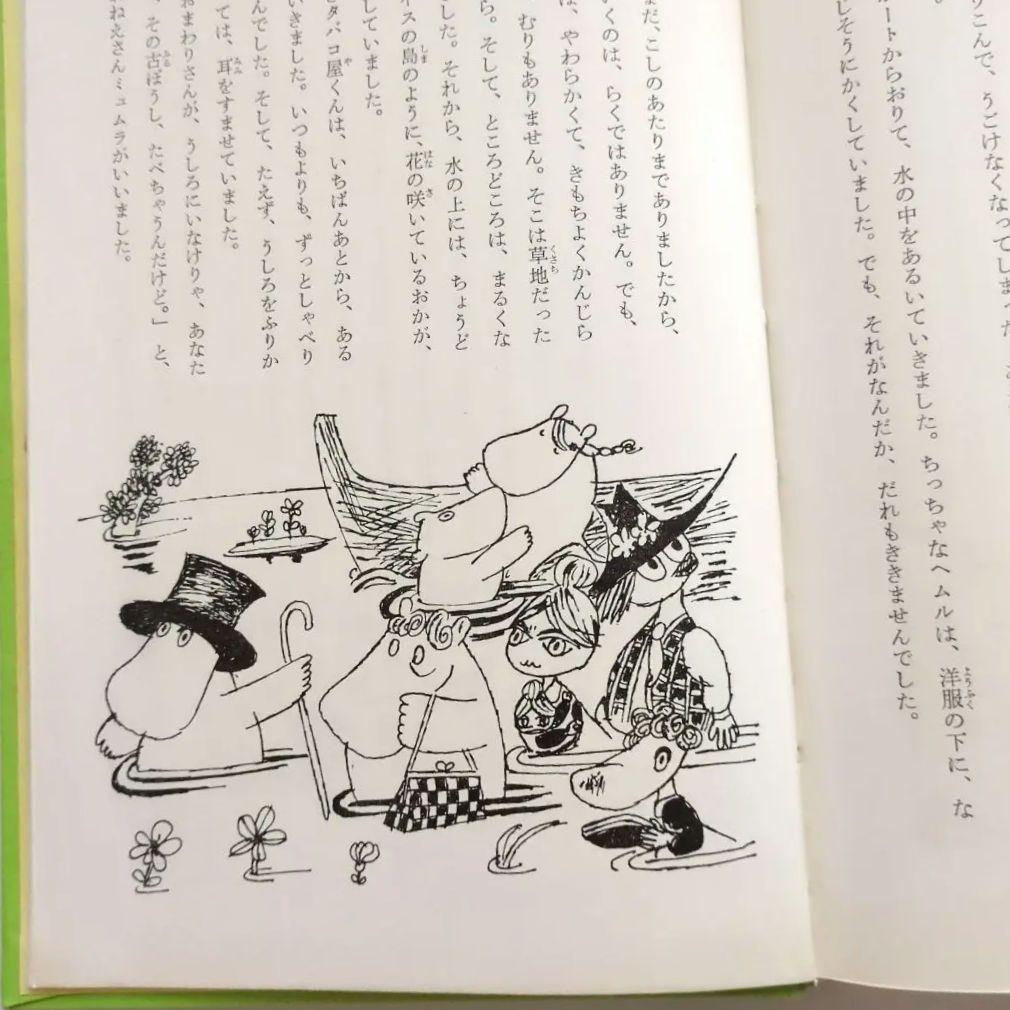 りこんで、うごけなくなってしまった
ートからおりて、水の中をあるいていきました。ちっちゃなヘムルは、洋服の下に、な
じそうにかくしていました。でも、それがなんだか、だれもききませんでした。
まだ、こしのあたりまでありましたから、
いくのは、らくではありません。でも、
は、やわらかくて、きもちよくかんじら
むりもありません。そこは草地だった
ら。そして、ところどころは、まるくな
した。それから、水の上には、ちょうど
イスの島のように、花の咲いているおかが、
していました。
タバコ屋くんは、いちばんあとから、ある
いきました。いつもよりも、ずっとしゃべり
んでした。そして、たえず、うしろをふりか
ては、耳をすませていました。
おまわりさんが、うしろにいなけりゃ、あなた
、その古ぼうし、たべちゃうんだけど。」と、
ねえさんミュムラがいいました。